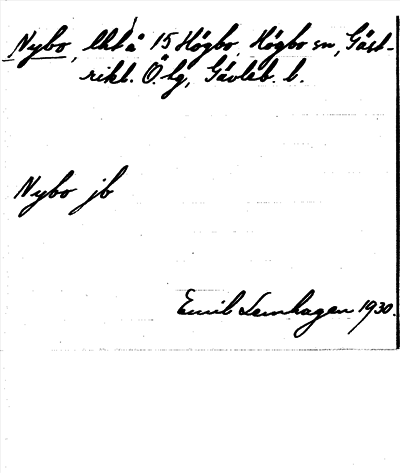 Nybo, lht å 15 Högbo, Högbo sn, Gäst-
rikl. Ö. tg, Gävleb. l.
Nybo jb
Emil Lemhagen 1930.